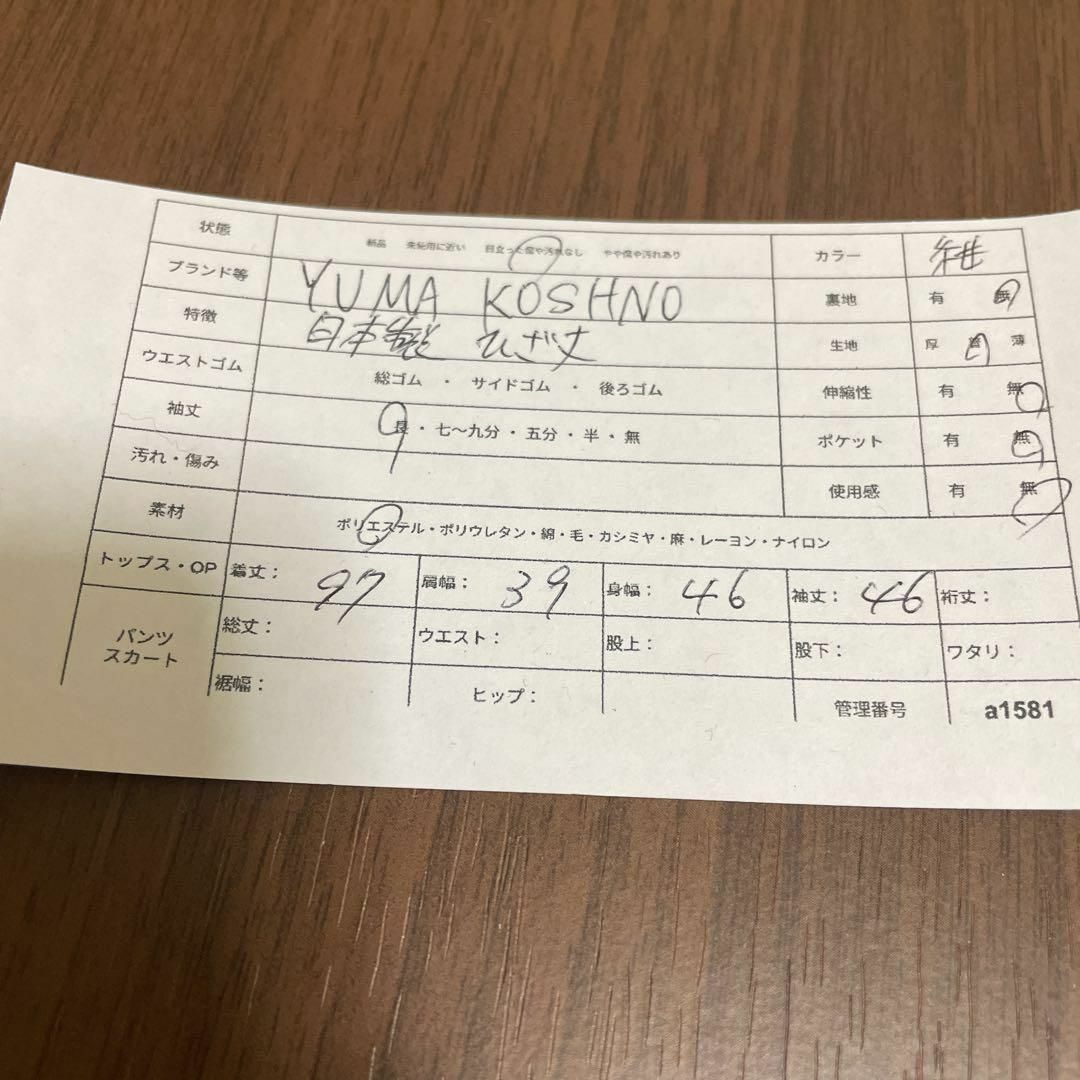 状態 新品 未使用に近い 目立った傷や汚れなし やや傷や汚れあり カラー
ブランド等 YUMA KOSHNO 裏地 有 無
特徴 日本製 ひざ丈 生地 厚 普 薄
ウエストゴム 総ゴム ・ サイドゴム ・ 後ろゴム 伸縮性 有 無
袖丈 長・七〜九分・五分・半・無 ポケット 有 無
汚れ・傷み 使用感 有 無
素材 ポリエステル・ポリウレタン・綿・毛・カシミヤ・麻・レーヨン・ナイロン
トップス・OP 着丈: 97 肩幅: 39 身幅: 46 袖丈: 46 裄丈:
パンツ スカート 総丈: ウエスト: 股上: 股下: ワタリ:
裾幅: ヒップ: 管理番号 a1581